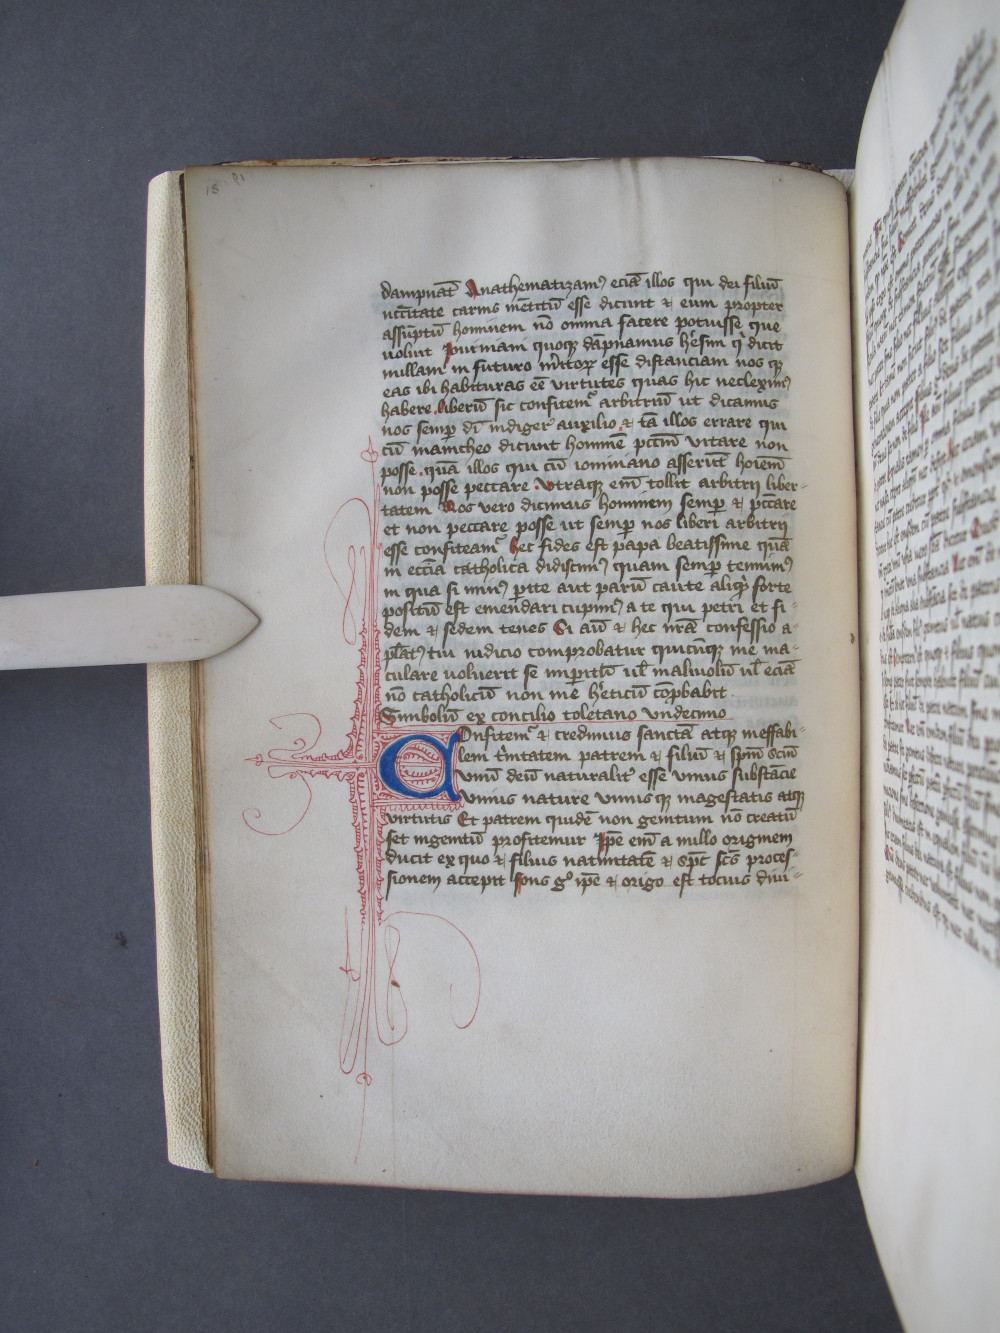 dampnāt Anathematizam⁹ eciā illos qui dei filiū
nec̄citate carnis mētitū esse dicunt & eum propter
assūptū hominem nō omnia facere potuisse que
voluit Iouiniani quoqꝫ dāpnamus h̄esim q̇ dicit
nullam in futuro m̄itoꝝ esse distanciam nos qꝫ
eas ibi habituras eē virtutes quas hic neclexim⁹
habere. liberū sic confitem̃ arbitriū ut dicamus
nos semꝑ dī indiger̃ auxilio & tā illos errare qui
cū manicheo dicunt hominē pccm̄ vitare non
posse. quā illos qui cū iouiniano asserūt hoīem
non posse peccare. Vtraqꝫ em̄ tollit arbitrij liber-
tatem Nos vero dicimus hominem semꝑ & pc̄care
et non peccare posse ut semꝑ nos liberi arbitrij
esse confiteam̃ hec fides est papa beatissime quā
in ecc̄ia catholica didiscim⁹ quam semꝑ tenuim⁹
in qua si min⁹ ꝑite aut parū caute aliqḋ forte
positū est emendari cupim⁹ a te qui petri et fi-
dem & sedem tenes Si aūt & hec nrā confessio a-
pl̄at⁹ tui iudicio comprobatur quicūqꝫ me ma-
culare voluerit se imperitū ul̄ maliuolū ul̄ eciā
nō catholicū non me h̄eticū cōprobabit.
Simbolū ex concilio toletano vndecimo
Confitem̃ & credimus sanctā atqꝫ ineffabi-
lem t̄initatem patrem & filiū & spm̄ scm̄
vnū deū naturalit̃ esse vnius substācie
vnius nature vnius qꝫ magestatis atqꝫ
virtutis Et patrem quidē non genitum nō creatū
set ingenitū profitemur Ipē em̄ a nullo originem
ducit ex quo & filius natiuitatē & spc̄ scs̄ proces-
sionem accepit fons gᵒ ipē & origo est tocius diui-